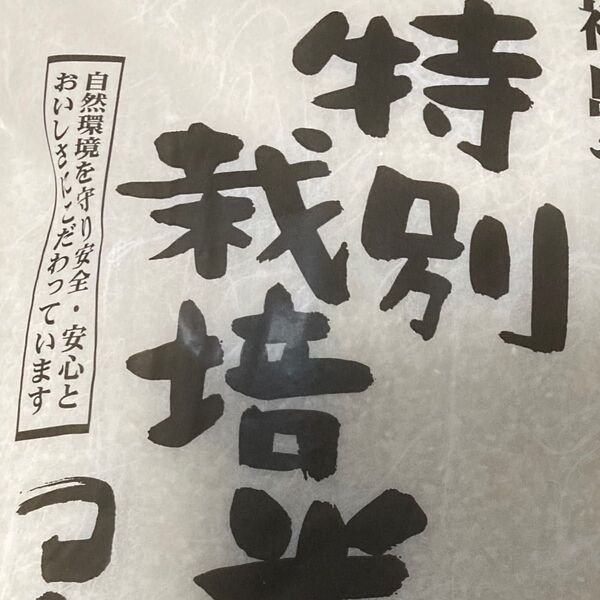 特別
栽培米
自然環境を守り安全・安心と
おいしさにこだわっています